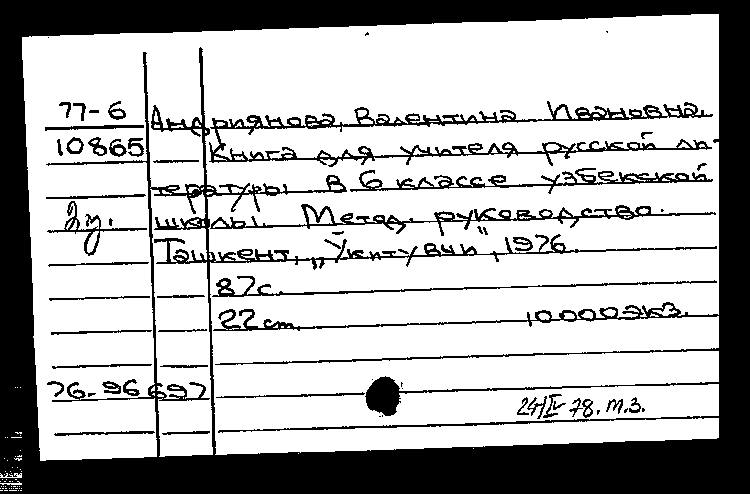 77-6
Андриянова, Валентина Ивановна.
10865
Книга для учителя русской ли-
тературы в 6 классе узбекской
школы. Метод. руководство.
Ташкент, „Ўкитувчи", 1976.
87с.
22 cm. 10000экз.
76-96697
24/IV-78. т.з.